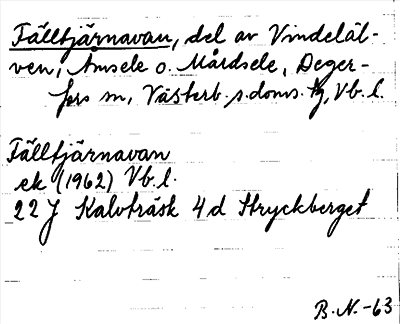 Tälltjärnavan, del av Vindeläl-
ven, Amsele o. Mårdsele, Deger-
fors sn, Västerb. s. doms. tg, Vb. l.
Tälltjärnavan
ek (1962) Vb. l.
22 J Kalvträsk 4 d Stryckberget
B. N. -63